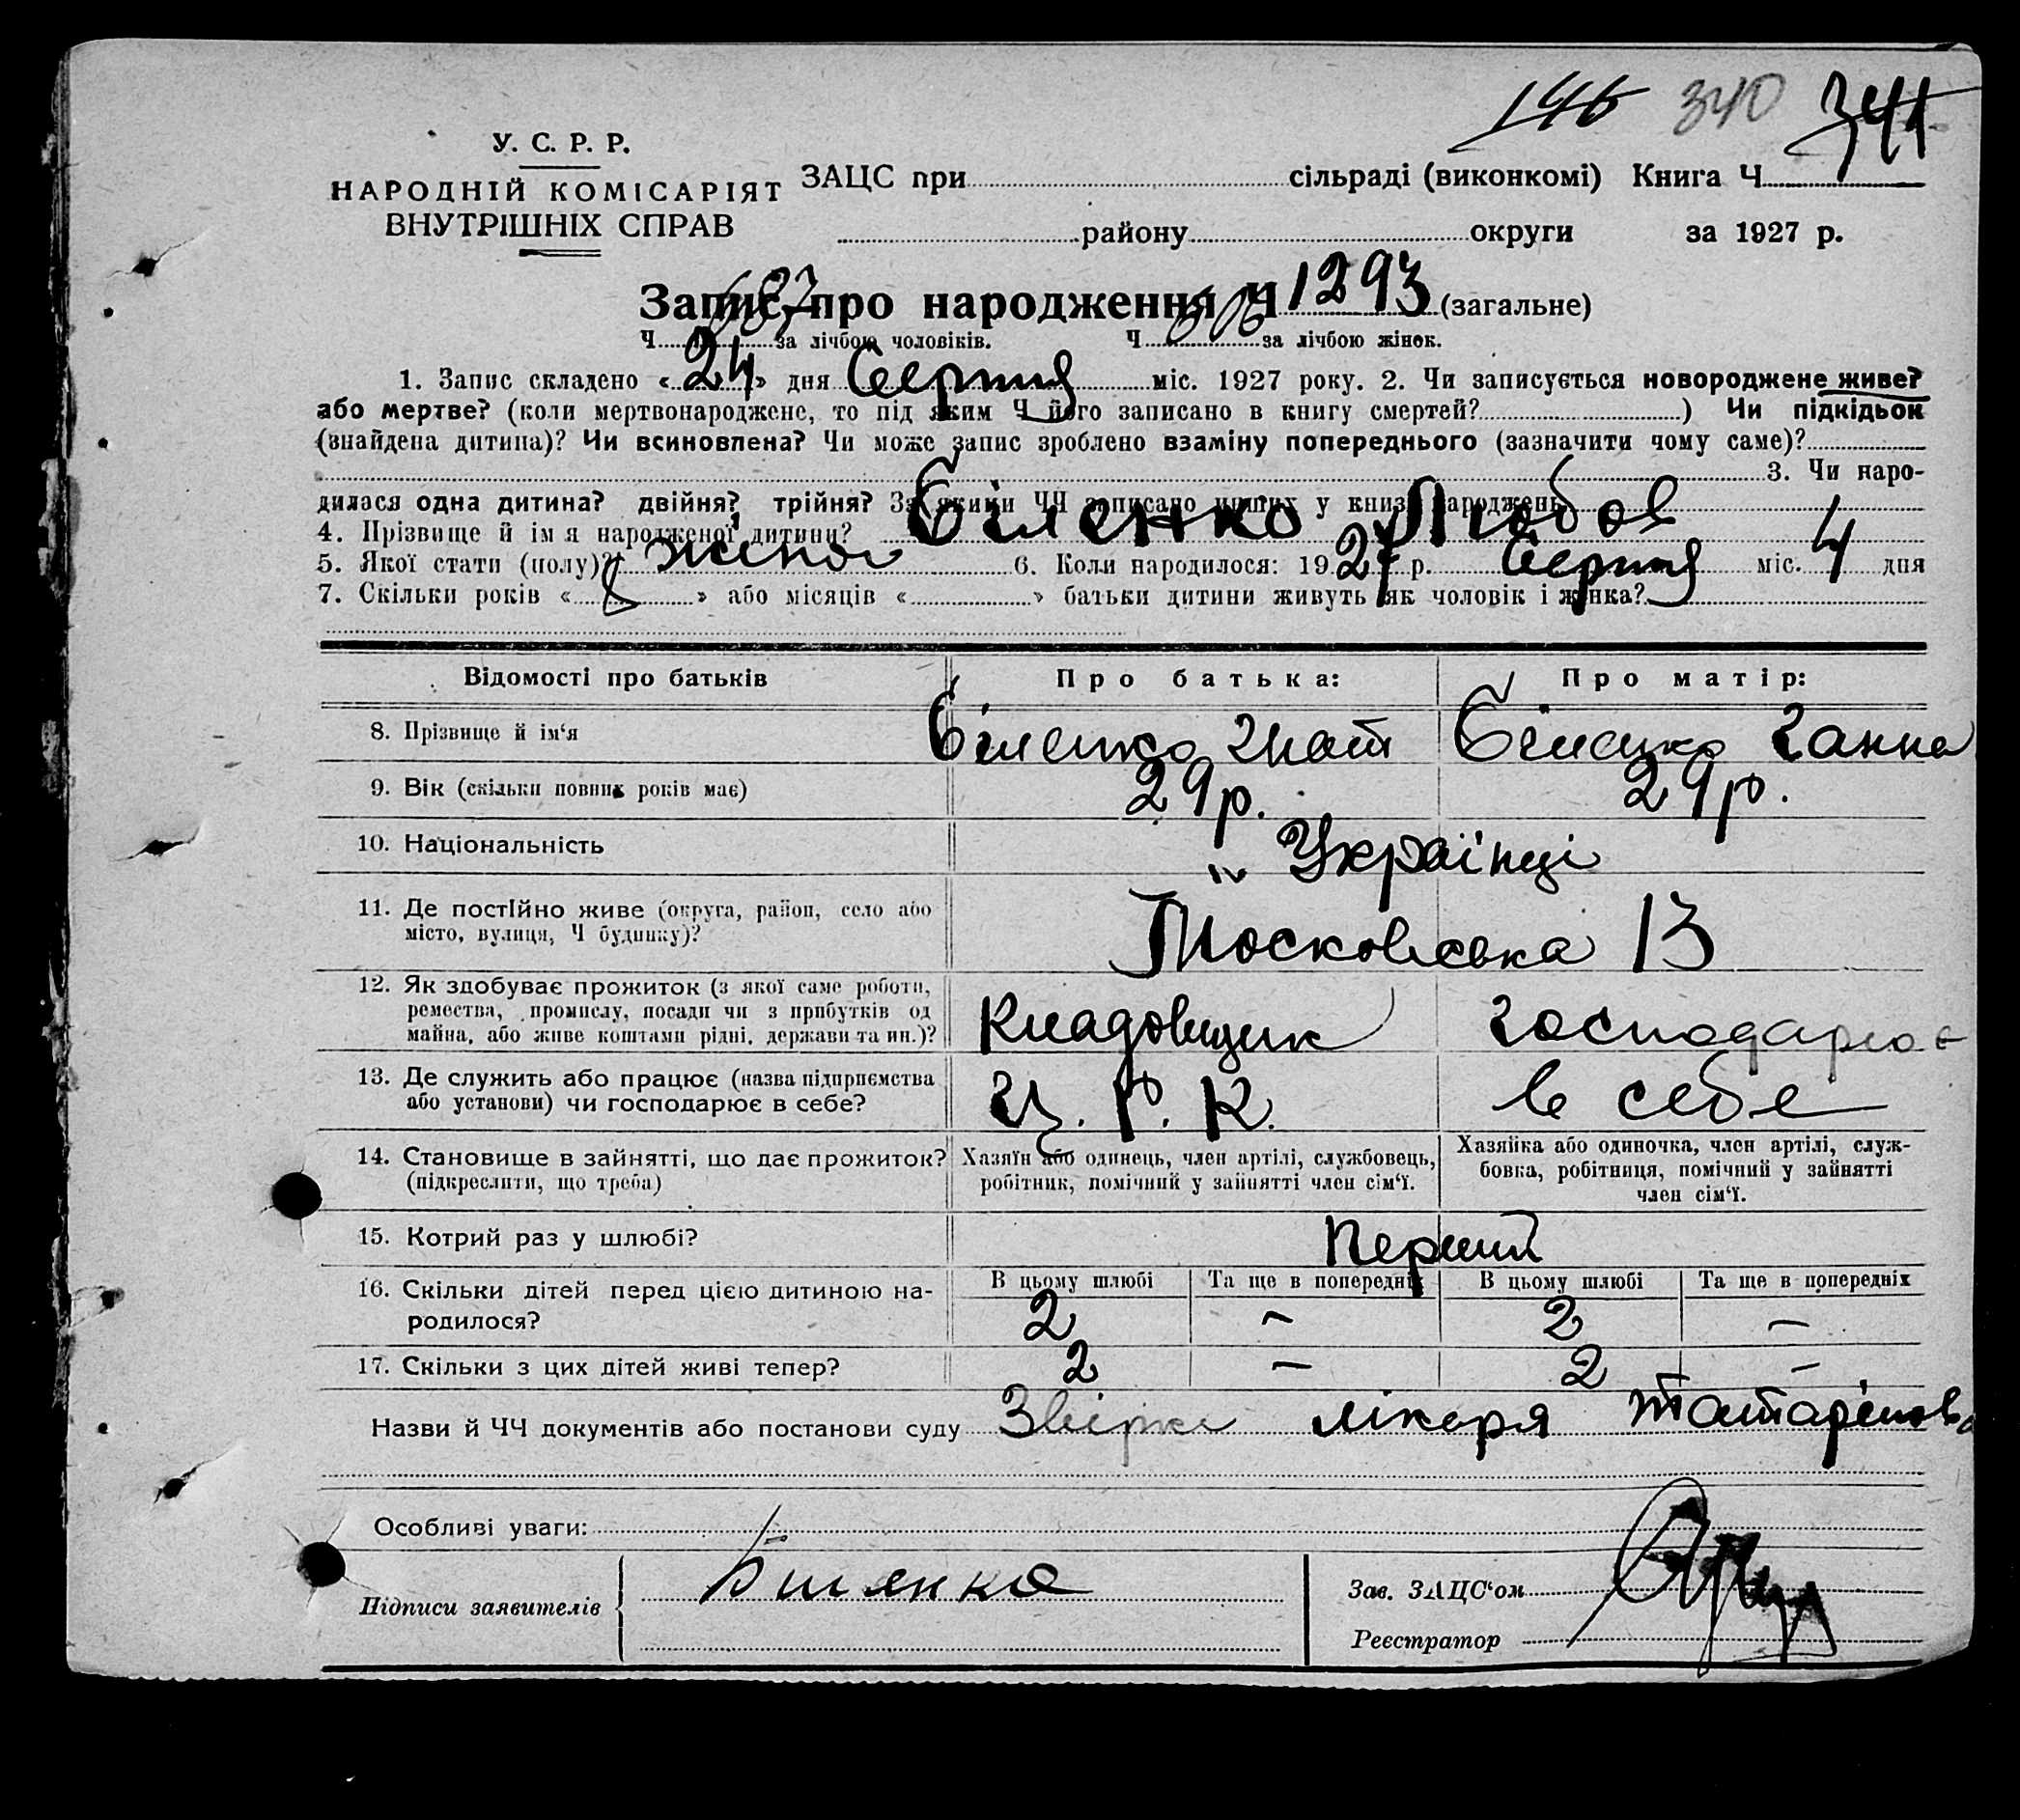 146 340 341
У. С. Р. Р.
НАРОДНІЙ КОМІСАРІЯТ
ВНУТРІШНІХ СПРАВ
ЗАЦС при сільраді (виконкомі) Книга Ч.
району округи за 1927 р.
Запис про народження Ч 1293 (загальне)
Ч. 687 за лічбою чоловіків. Ч. 606 за лічбою жінок.
1. Запис складено « 24 » дня Серпня міс. 1927 року. 2. Чи записується новороджене живе?
або мертве? (коли мертвонароджене, то під яким Ч його записано в книгу смертей?) Чи підкідьок
(знайдена дитина)? Чи всиновлена? Чи може запис зроблено взаміну попереднього (зазначити чому саме)?
3. Чи наро-
дилася одна дитина? двійня? трійня? За якими ЧЧ записано инших у книзі народжень
4. Прізвище й ім я народженої дитини? Біленко Любов
5. Якої стати (полу)? жіноч 6. Коли народилося: 1927 р. Серпня міс. 4 дня
7. Скільки років « 8 » або місяців « » батьки дитини живуть як чоловік і жінка?
Відомості про батьків Про батька: Про матір:
8. Прізвище й ім‘я Біленко Гнат Біленко Ганна
9. Вік (скільки повних років має) 29 р. 29 р.
10. Національність „ Українці
11. Де постійно живе (округа, район, село або
місто, вулиця, Ч будинку)? Московська 13
12. Як здобуває прожиток (з якої саме роботи,
ремества, промислу, посади чи з прибутків од
майна, або живе коштами рідні, держави та ин.)? Кладовщик господарює
13. Де служить або працює (назва підприємства
або установи) чи господарює в себе? Ц. Р. К. в себе
14. Становище в зайнятті, що дає прожиток?
(підкреслити, що треба)
Хазяїн або одинець, член артілі, службовець,
робітник, помічний у зайнятті член сім‘ї.
Хазяйка або одиночка, член артілі, служ-
бовка, робітниця, помічний у зайнятті
член сім‘ї.
15. Котрий раз у шлюбі? Перший
16. Скільки дітей перед цією дитиною на-
родилося?
В цьому шлюбі Та ще в попередніх В цьому шлюбі Та ще в попередніх
2 – 2 –
17. Скільки з цих дітей живі тепер? 2 – 2 –
Назви й ЧЧ документів або постанови суду лікаря
Особливі уваги:
Підписи заявителів Биленко
Зав. ЗАЦС‘ом
Реєстратор